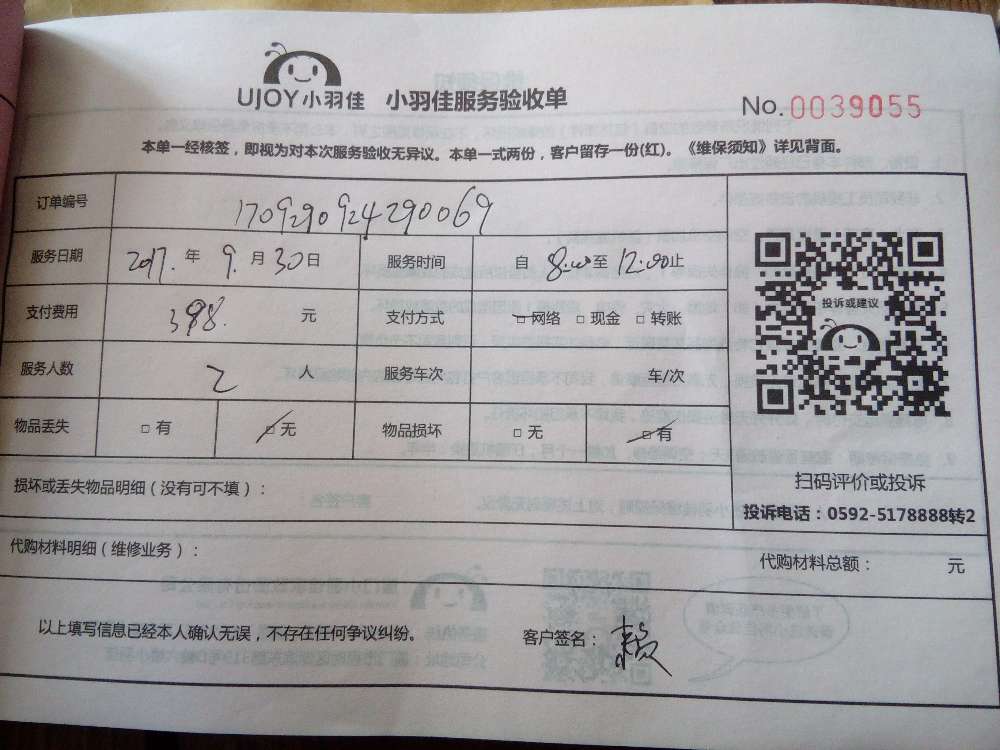 UJOY小羽佳 小羽佳服务验收单
No. 0039055
本单一经核签，即视为对本次服务验收无异议。本单一式两份，客户留存一份(红)。《维保须知》详见背面。
订单编号 1709290924290069
服务日期 2017. 年 9. 月 30 日 服务时间 自 8:00 至 12:00 止
支付费用 398. 元 支付方式 □ 网络 □ 现金 □ 转账
服务人数 2 人 服务车次 车/次
物品丢失 □ 有 □ 无 物品损坏 □ 无 □ 有
投诉或建议
扫码评价或投诉
投诉电话：0592-5178888转2
损坏或丢失物品明细（没有可不填）：
代购材料明细（维修业务）： 代购材料总额： 元
以上填写信息已经本人确认无误，不存在任何争议纠纷。 客户签名： 赖